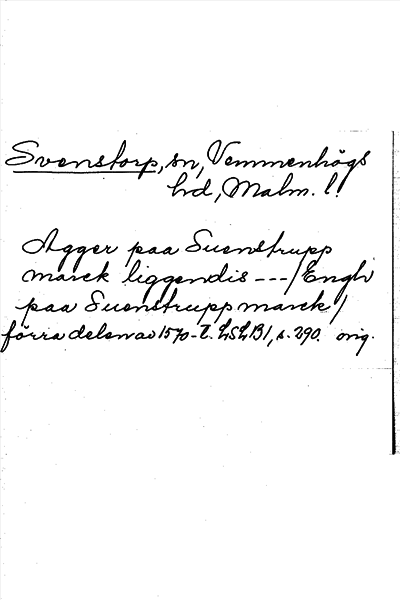 Svenstorp, sn, Vemmenhögs
hd, Malm. l.
Agger paa Suenstrupp
marck liggendis --- / Engh
paa Suenstrupp marck /
förra delen av 1570-t. LSLB1, s. 290. orig.